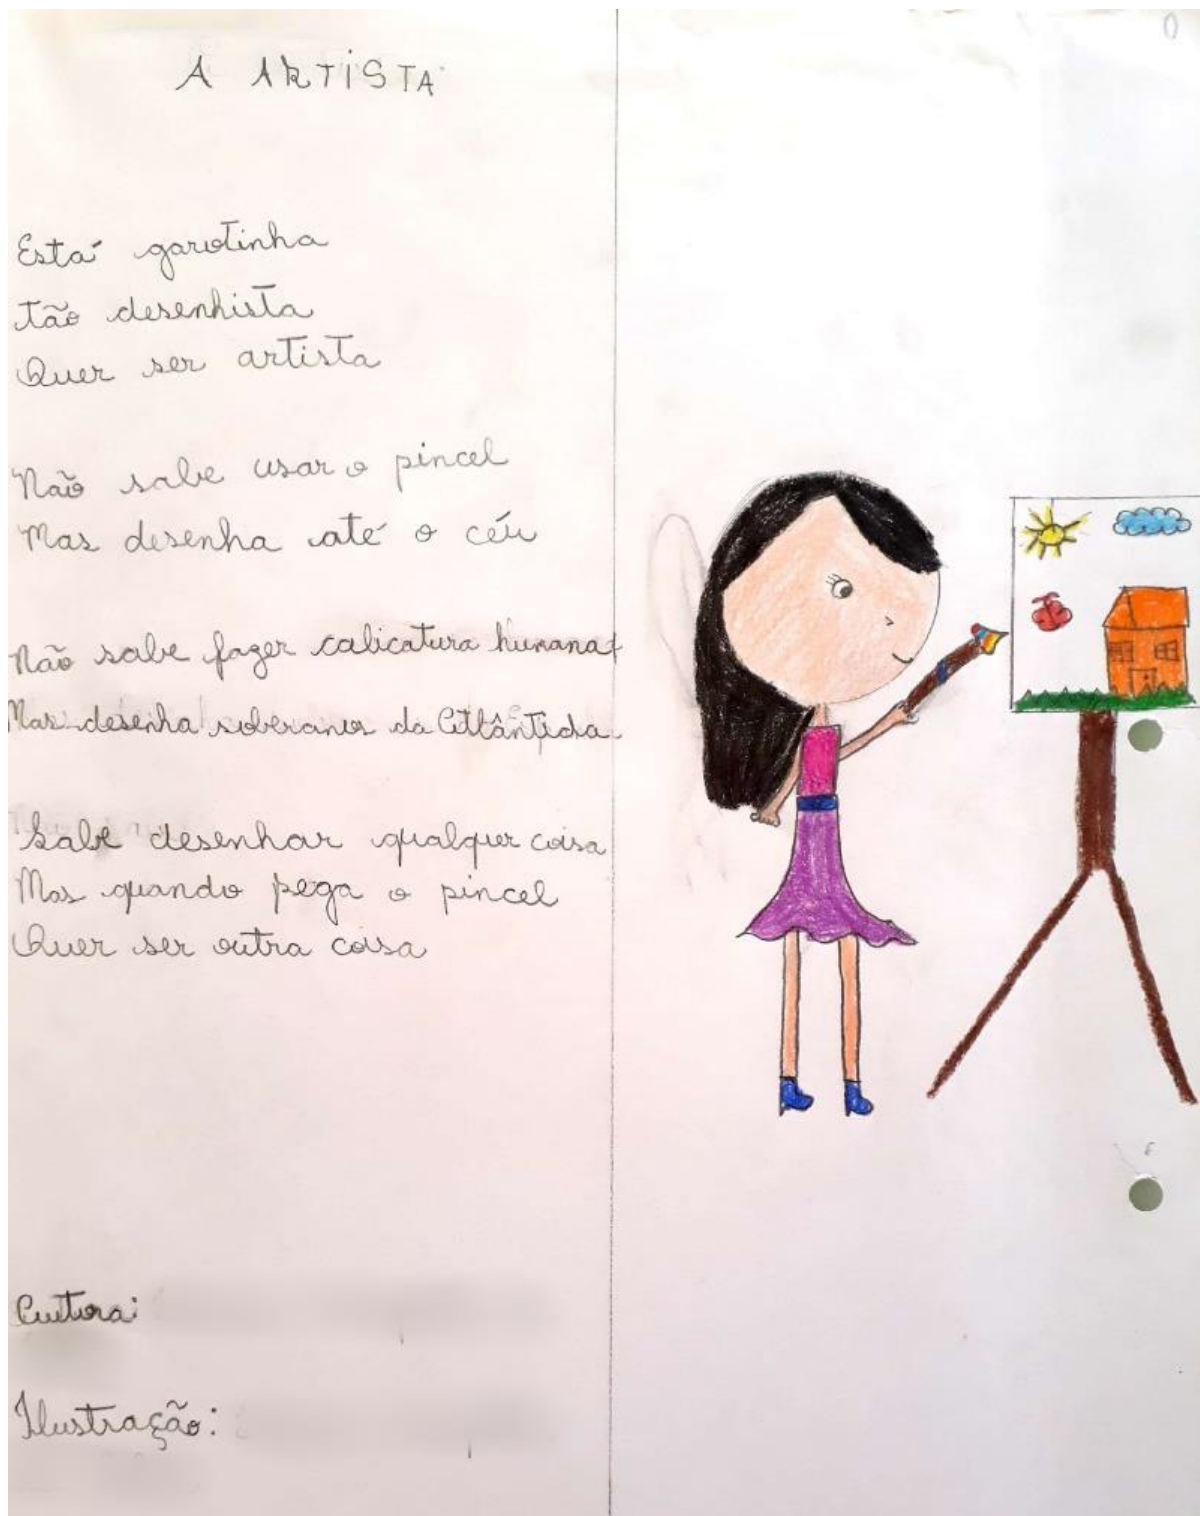 A ARTISTA
Está garotinha
Tão desenhista
Quer ser artista
Não sabe usar o pincel
Mas desenha até o céu
Não sabe fazer calicatura humana
Mas desenha soberanos da Atlântida
Sabe desenhar qualquer coisa
Mas quando pega o pincel
Quer ser outra coisa
Autora:
Ilustração: